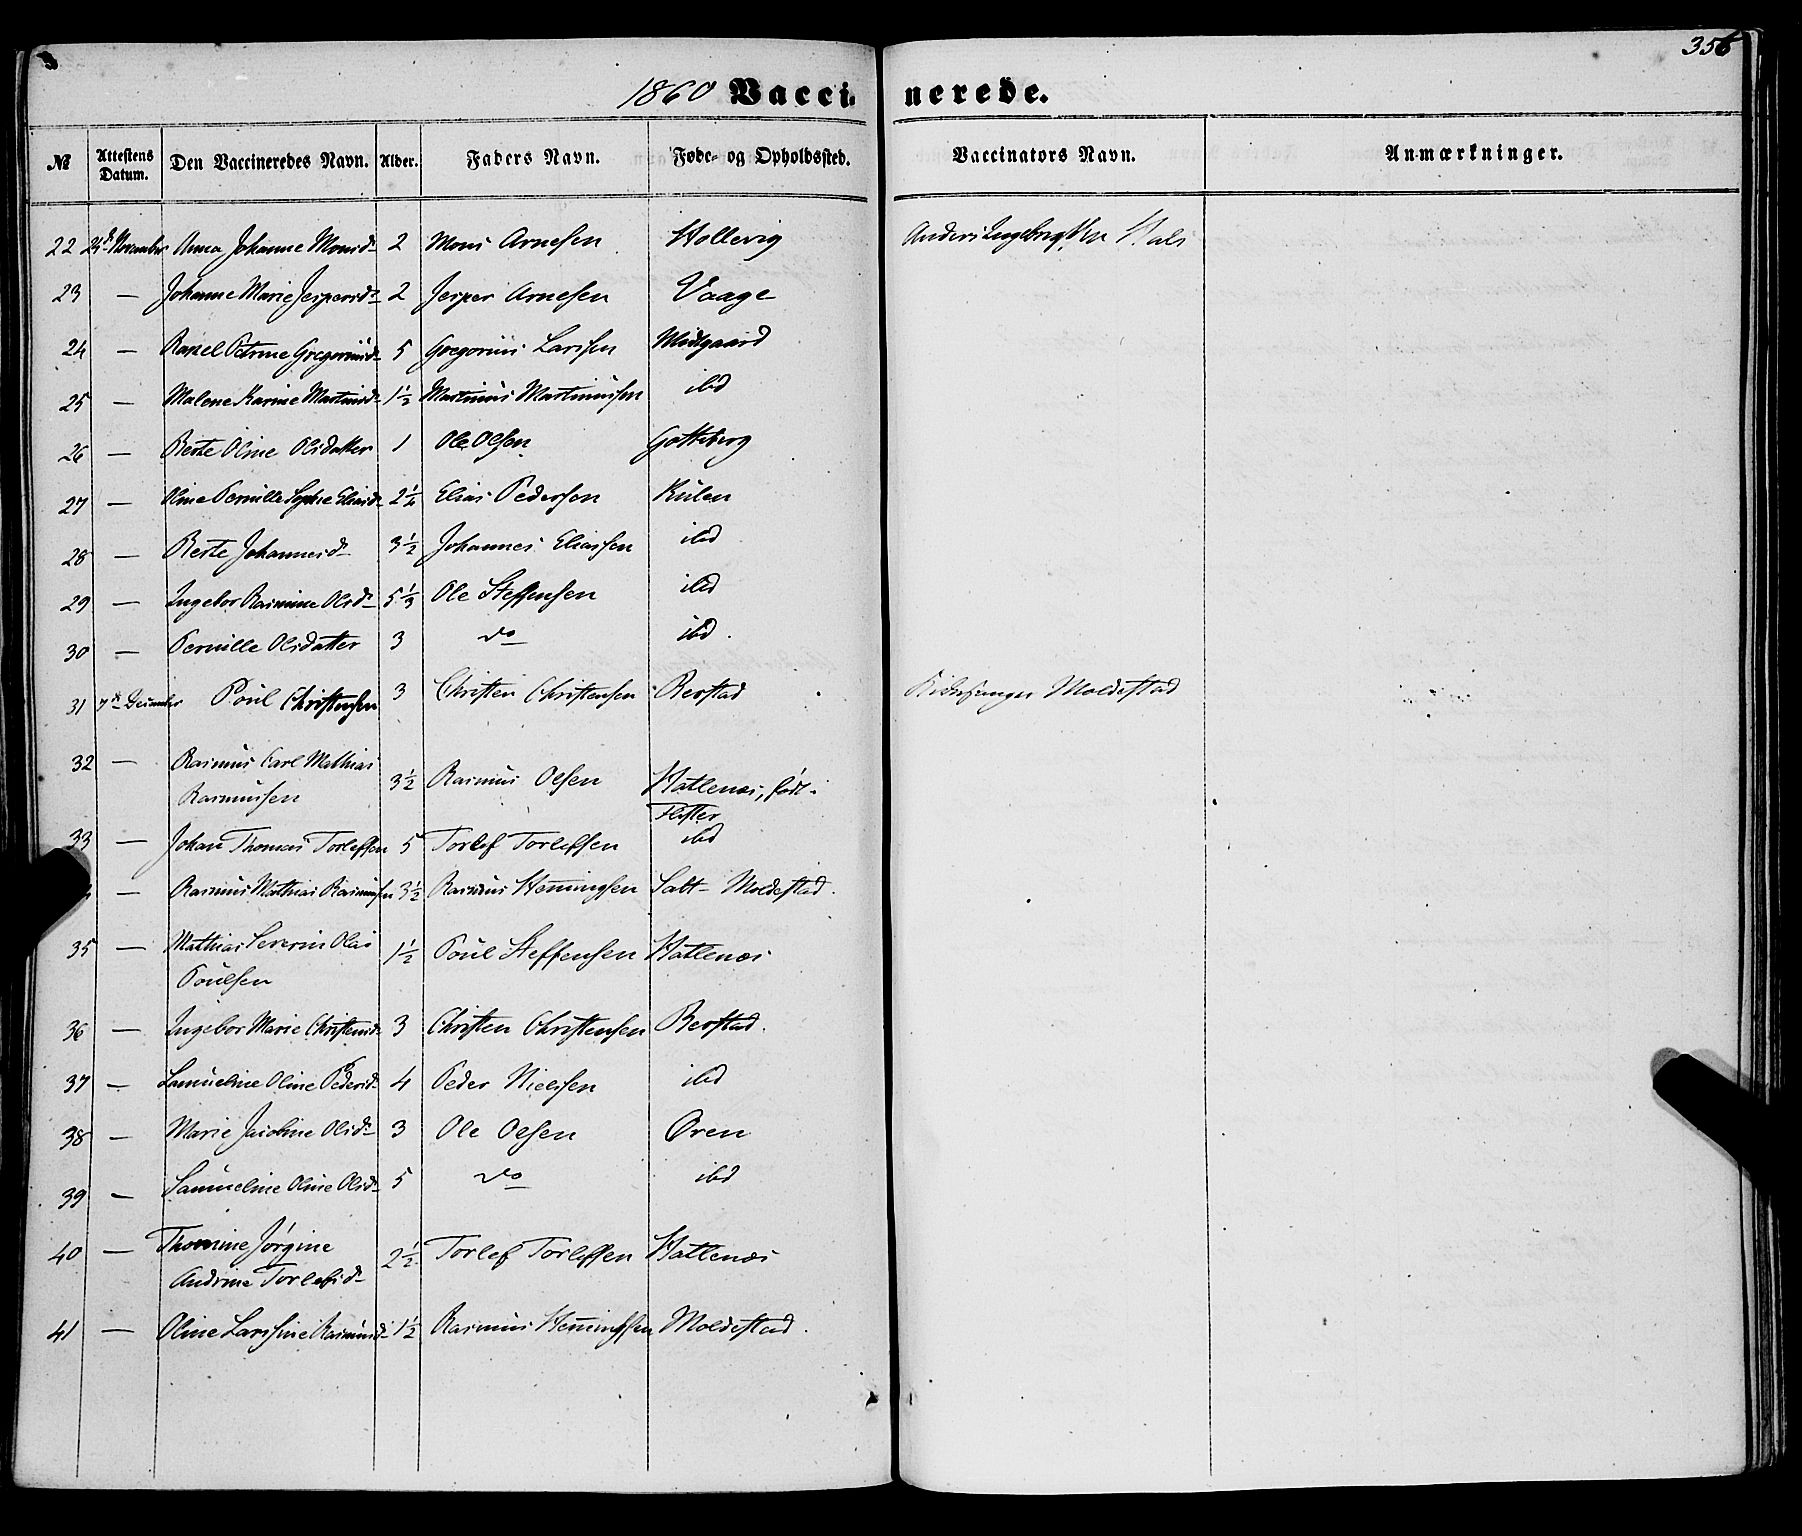 356
1860 Vaccinerede.
№ Attestens Datum. Den Vaccineredes Navn. Alder. Faders Navn. Føde- og Opholdssted. Vaccinators Navn. Anmærkninger.
22 24d November Anna Johanne Monsd. 2 Mons Arnesen Hollevig Anders
23 — Johanne Marie Jespersd. 2 Jesper Arnesen Vaage
24 — Rakel Petrine Gregoriusd. 5 Gregorius Larssen Midgaard
25 — Malene Karine Martinusd. 1½ Martinus Martinussen ibd
26 — Berte Oline Olsdatter 1 Ole Olsen Gotteberg
27 — Oline Pernille Sophie Eliasd. 2½ Elias Pedersen Kulen
28 — Berte Johannesd. 3½ Johannes Eliassen ibd
29 — Ingebor Rasmine Olsd. 5⅓ Ole Steffensen ibd
30 — Pernille Olsdatter 3 do ibd.
31 7de December Poul Christensen 3 Christen Christensen Berstad Moldestad
32 — Rasmus Carl Mathias
Rasmussen 3½ Rasmus Olsen Hatlenæs, født
33 — Johan Thomas Torlefsen 5 Torlef Torlefsen ibd
— Rasmus Mathias Rasmussen 3½ Rasmus Hemingsen Salt- Moldestad.
35 — Mathias Severin Olai
Poulsen 1½ Poul Steffensen Hatlenæs
36 — Ingebor Marie Christensd. 3 Christen Christensen Berstad.
37 — Samueline Oline Pedersd. 4 Peder Nielssen ibd
38 — Marie Jacobine Olsd. 3 Ole Olsen Øren
39 — Samueline Oline Olsd. 5 do ibd
40 — Thomine Jørgine
Andrine Torlefsd. 2½ Torlef Torlefsen Hatlenæs
41 — Oline Larssine Rasmusd. 1½ Rasmus Hemingsen Moldestad.